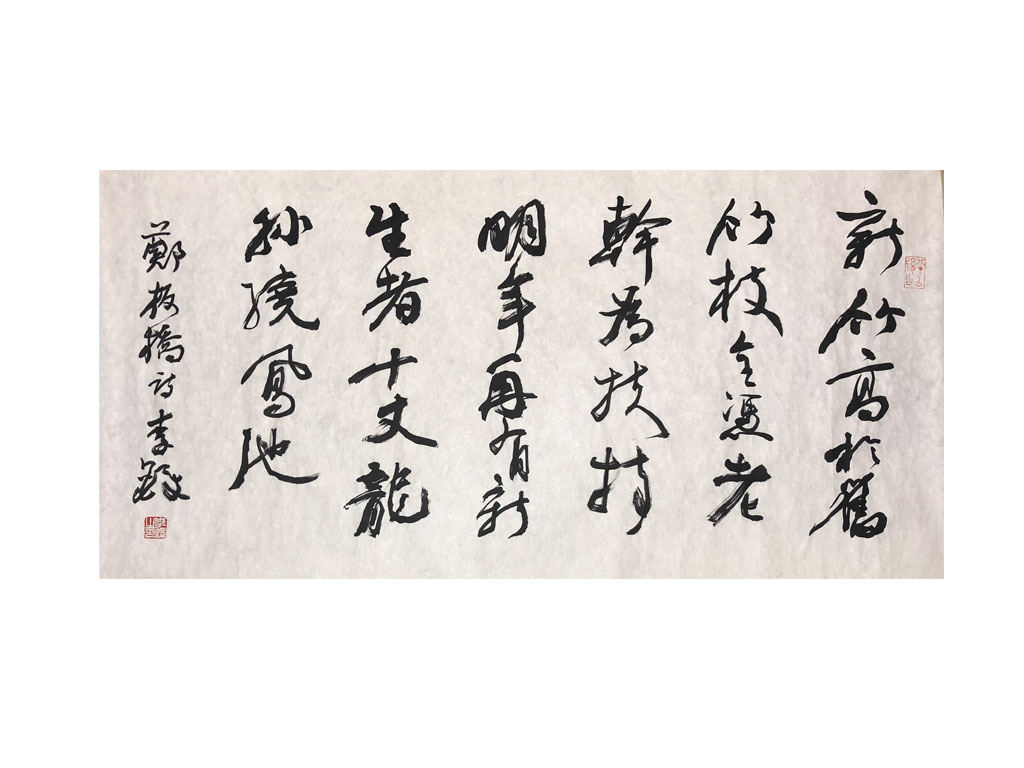 新竹高於舊
竹枝全憑老
幹為扶持
明年再有新
生者十丈龍
孫繞鳳池
鄭板橋詩李